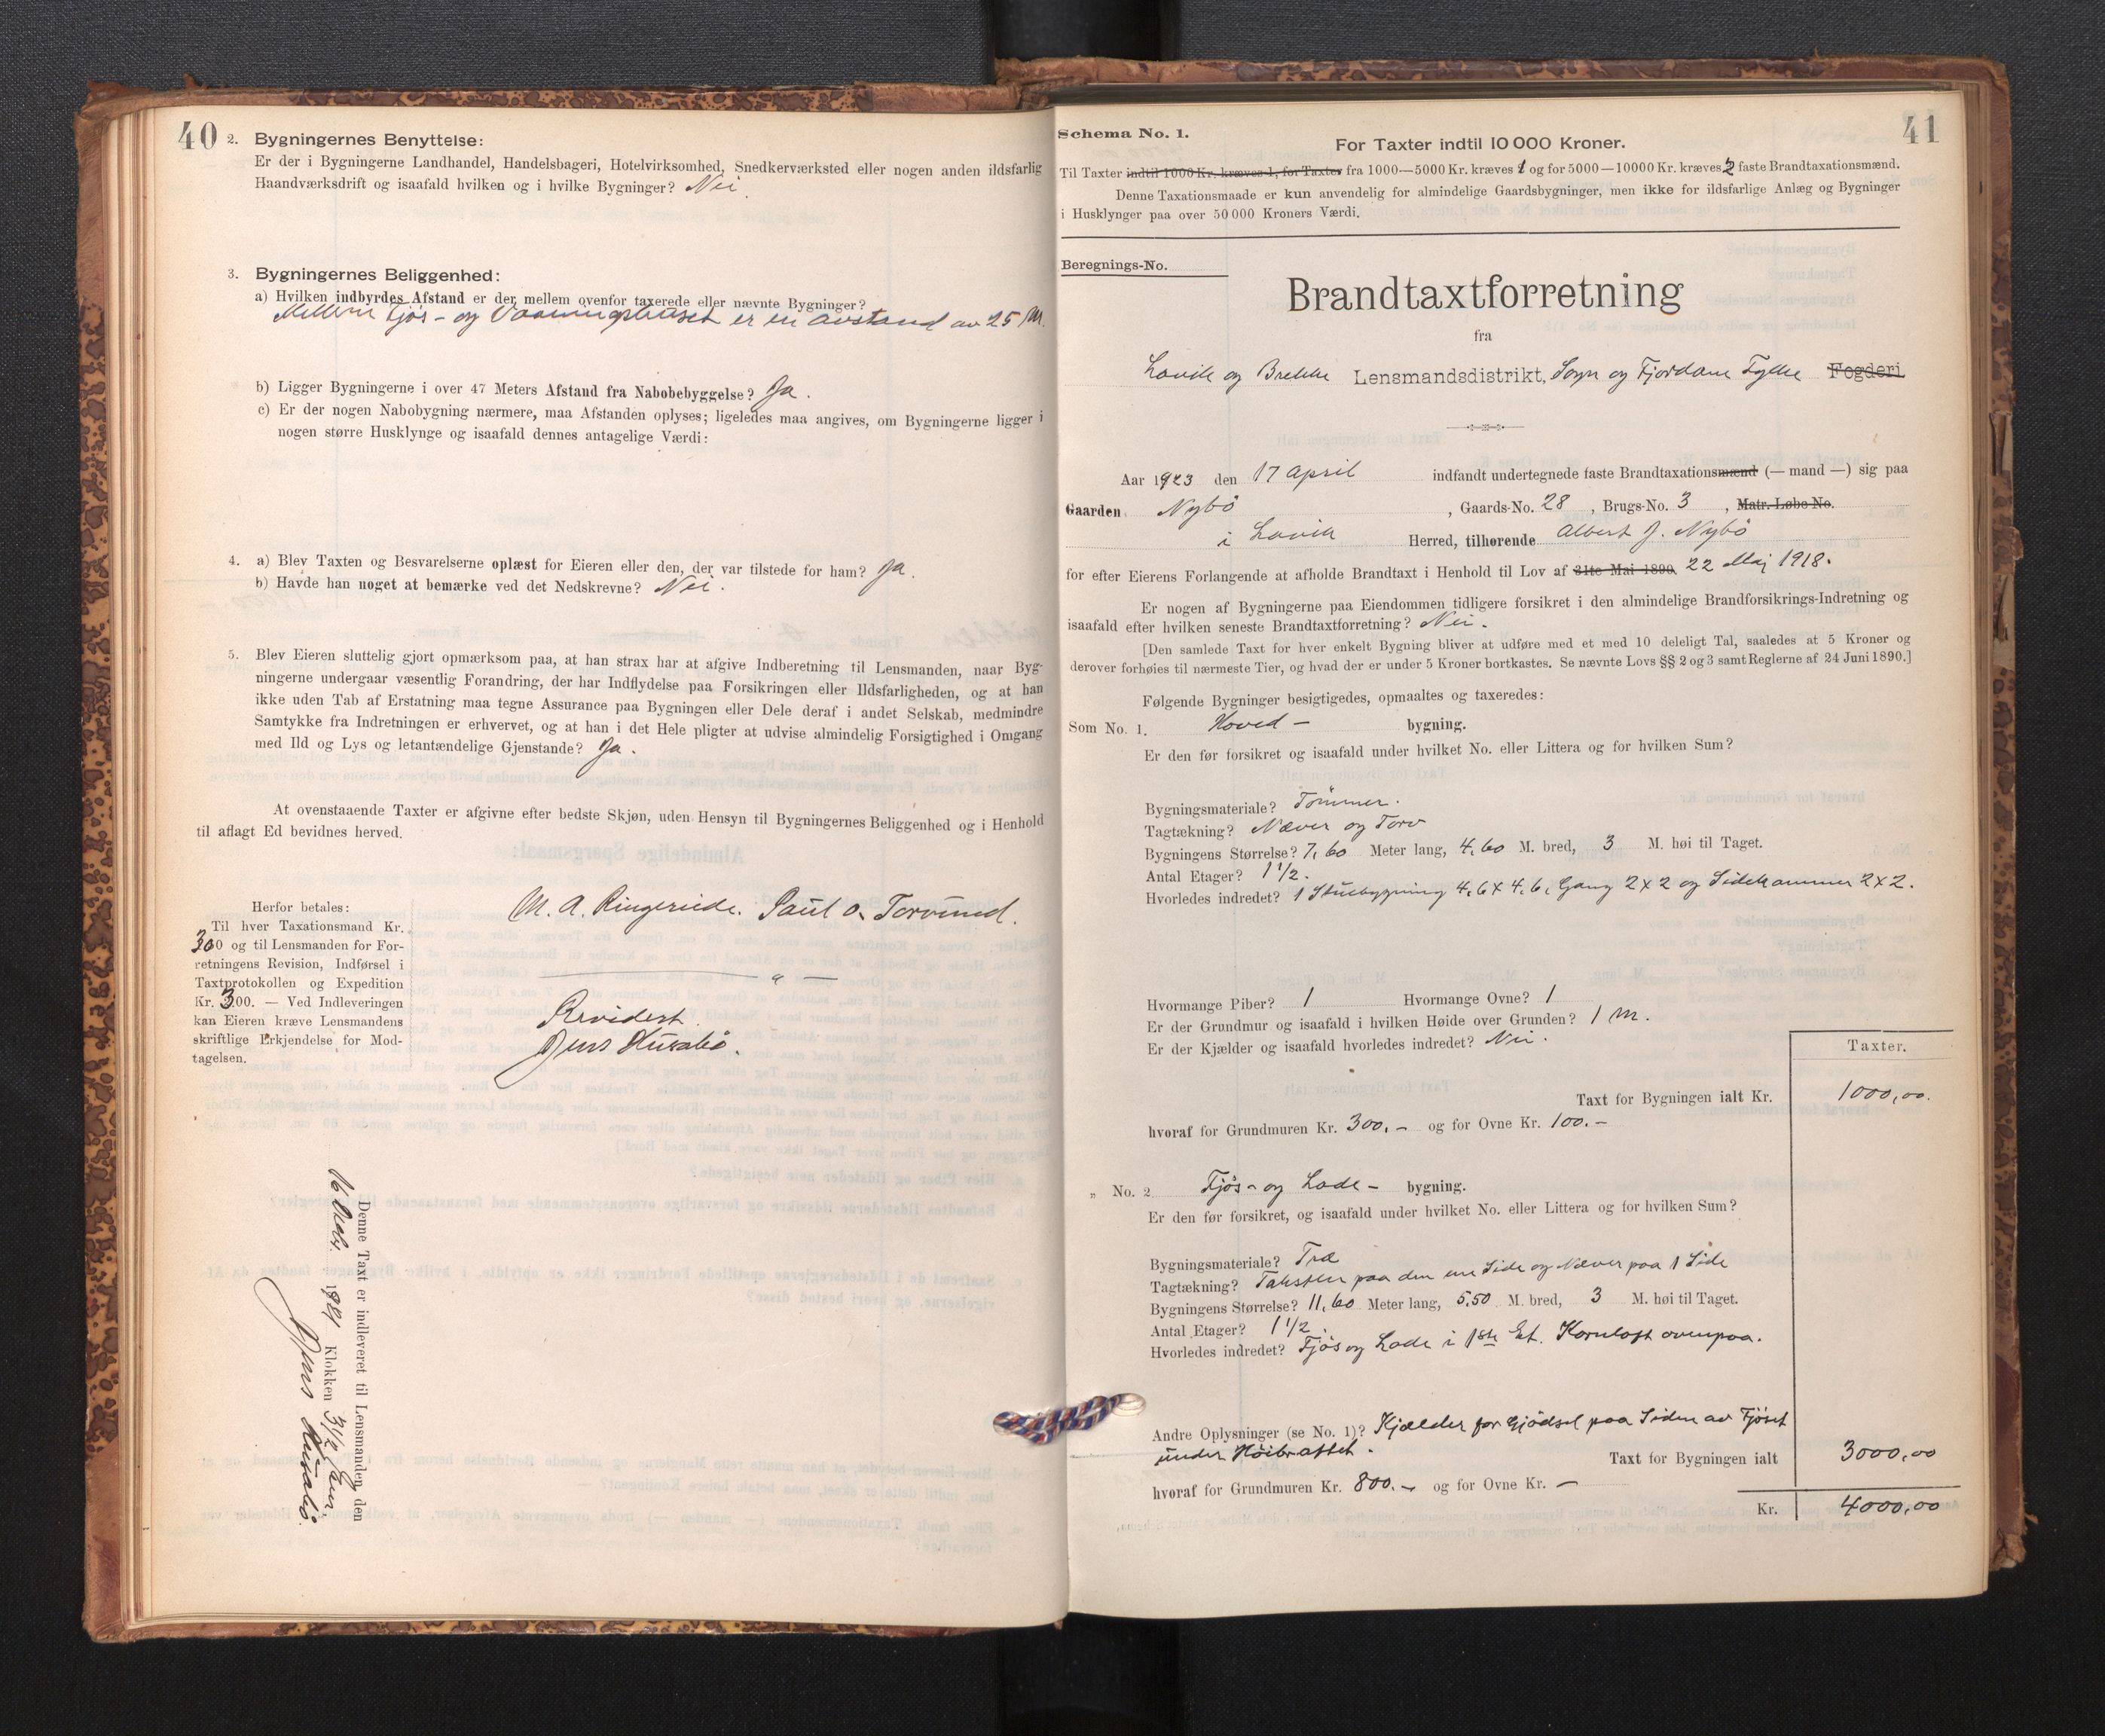 40
2. Bygningernes Benyttelse:
Er der i Bygningerne Landhandel, Handelsbageri, Hotelvirksomhed, Snedkerværksted eller nogen anden ildsfarlig
Haandværksdrift og isaafald hvilken og i hvilke Bygninger? Nei.
3. Bygningernes Beliggenhed:
a) Hvilken indbyrdes Afstand er der mellem ovenfor taxerede eller nævnte Bygninger?
Mellem Fjøs- og Vaaningshuset er en avstand av 25 M.
b) Ligger Bygningerne i over 47 Meters Afstand fra Nabobebyggelse? Ja.
c) Er der nogen Nabobygning nærmere, maa Afstanden oplyses; ligeledes maa angives, om Bygningerne ligger i
nogen større Husklynge og isaafald dennes antagelige Værdi:
4. a) Blev Taxten og Besvarelserne oplæst for Eieren eller den, der var tilstede for ham? Ja.
b) Havde han noget at bemærke ved det Nedskrevne? Nei.
5. Blev Eieren sluttelig gjort opmærksom paa, at han strax har at afgive Indberetning til Lensmanden, naar Byg-
ningerne undergaar væsentlig Forandring, der har Indflydelse paa Forsikringen eller Ildsfarligheden, og at han
ikke uden Tab af Erstatning maa tegne Assurance paa Bygningen eller Dele deraf i andet Selskab, medmindre
Samtykke fra Indretningen er erhvervet, og at han i det Hele pligter at udvise almindelig Forsigtighed i Omgang
med Ild og Lys og letantændelige Gjenstande? Ja.
At ovenstaaende Taxter er afgivne efter bedste Skjøn, uden Hensyn til Bygningernes Beliggenhed og i Henhold
til aflagt Ed bevidnes herved.
M. A. Ringereide. Paul O. Torvund.
Herfor betales:
Til hver Taxationsmand Kr.
300 og til Lensmanden for For-
retningens Revision, Indførsel i
Taxtprotokollen og Expedition
Kr. 300. — Ved Indleveringen
kan Eieren kræve Lensmandens
skriftlige Erkjendelse for Mod-
tagelsen.
Revidert
Jens Husabø.
Denne Taxt er indleveret til Lensmanden den
Klokken 3 1/2
Jens Husabø.
41
Schema No. 1.
For Taxter indtil 10 000 Kroner.
Til Taxter indtil 1000 Kr. kræves 1, for Taxter fra 1000—5000 Kr. kræves 1 og for 5000—10000 Kr. kræves 2 faste Brandtaxationsmænd.
Denne Taxationsmaade er kun anvendelig for almindelige Gaardsbygninger, men ikke for ildsfarlige Anlæg og Bygninger
i Husklynger paa over 50 000 Kroners Værdi.
Beregnings-No.
Brandtaxtforretning
fra
Lavik og Brekke Lensmandsdistrikt, Sogn og Fjordane Fylke Fogderi
Aar 1923 den 17 April indfandt undertegnede faste Brandtaxationsmænd (— mand —) sig paa
Gaarden Nybö, Gaards-No. 28, Brugs-No. 3, Matr. Løbe No.
i Lavik Herred, tilhørende Albert J. Nybö
for efter Eierens Forlangende at afholde Brandtaxt i Henhold til Lov af 31te Mai 1890 22 Maj 1918.
Er nogen af Bygningerne paa Eiendommen tidligere forsikret i den almindelige Brandforsikrings-Indretning og
isaafald efter hvilken seneste Brandtaxtforretning? Nei.
[Den samlede Taxt for hver enkelt Bygning bliver at udføre med et med 10 deleligt Tal, saaledes at 5 Kroner og
derover forhøies til nærmeste Tier, og hvad der er under 5 Kroner bortkastes. Se nævnte Lovs §§ 2 og 3 samt Reglerne af 24 Juni 1890.]
Følgende Bygninger besigtigedes, opmaaltes og taxeredes:
Som No. 1. Hoved- bygning.
Er den før forsikret og isaafald under hvilket No. eller Littera og for hvilken Sum?
Bygningsmateriale? Tømmer.
Tagtækning? Næver og Torv
Bygningens Størrelse? 7,60 Meter lang, 4,60 M. bred, 3 M. høi til Taget.
Antal Etager? 1 1/2.
Hvorledes indredet? 1 Stuebygning 4,6 x 4,6, Gang 2 x 2 og Sidekammer 2 x 2.
Hvormange Piber? 1 Hvormange Ovne? 1
Er der Grundmur og isaafald i hvilken Høide over Grunden? 1 m.
Er der Kjælder og isaafald hvorledes indredet? Nei.
Taxter.
Taxt for Bygningen ialt Kr. 1000,00.
hvoraf for Grundmuren Kr. 300.- og for Ovne Kr. 100.-
„ No. 2 Fjös- og Lade- bygning.
Er den før forsikret, og isaafald under hvilket No. eller Littera og for hvilken Sum?
Bygningsmateriale? Træ
Tagtækning? Taksten paa den ene Side og Næver paa 1 Side
Bygningens Størrelse? 11,60 Meter lang, 5,50 M. bred, 3 M. høi til Taget.
Antal Etager? 1 1/2.
Hvorledes indredet? Fjös og Lade i 1ste Et. Kornloft ovenpaa.
Andre Oplysninger (se No. 1)? Kjælder for Gjødsel paa Siden av Fjöset
under Høibrattet.
Taxt for Bygningen ialt 3000,00
hvoraf for Grundmuren Kr. 800.- og for Ovne Kr. —
Kr. 4000,00